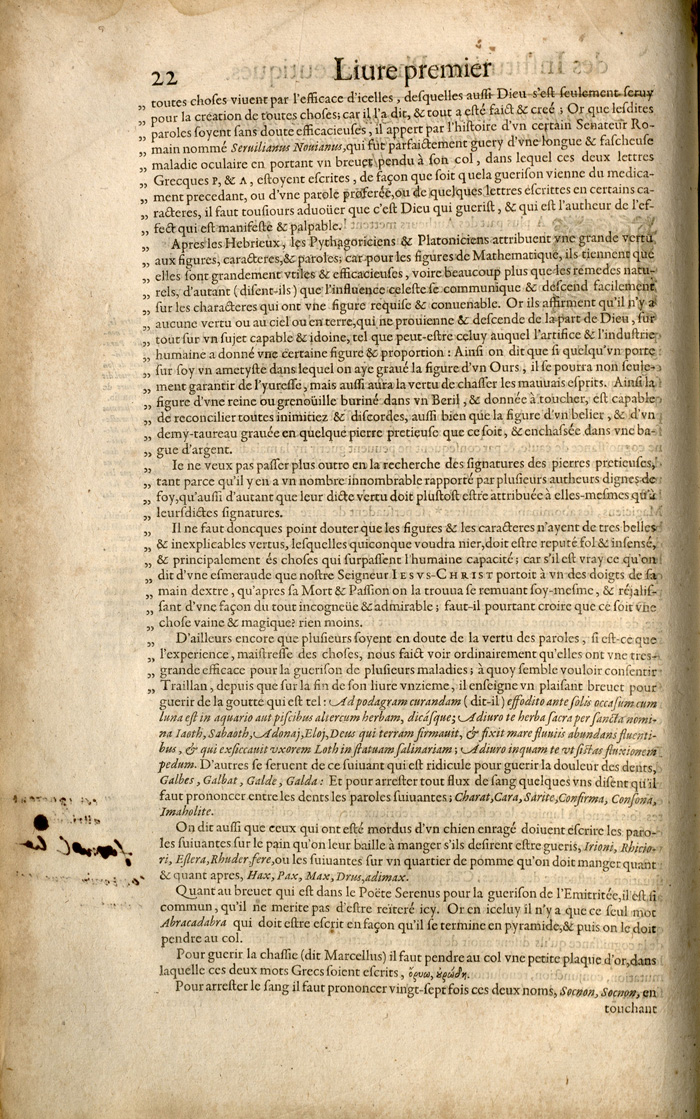 22 Liure premier
„ toutes choses viuent par l'efficace d'icelles, desquelles aussi Dieu s'est seulement seruy
„ pour la creation de toutes choses; car il l'a dit, & tout a esté faict & creé; Or que lesdites
„ paroles soyent sans doute efficacieuses, il appert par l'histoire d'vn certain Senateur Ro-
„ main nommé Seruilianus Nouianus, qui fut parfaictement guery d'vne longue & fascheuse
„ maladie oculaire en portant vn breuet pendu à son col, dans lequel ces deux lettres
„ Grecques P, & Λ, estoyent escrites, de façon que soit quela guerison vienne du medica-
„ ment precedant, ou d'vne parole proferée, ou de quelques lettres escrittes en certains ca-
„ racteres, il faut tousiours aduoüer que c'est Dieu qui guerist, & qui est l'autheur de l'ef-
„ fect qui est manifeste & palpable.
„ Apres les Hebrieux, les Pythagoriciens & Platoniciens attribuent vne grande vertu
„ aux figures, caracteres, & paroles; car pour les figures de Mathematique, ils tiennent que
„ elles sont grandement vtiles & efficacieuses, voire beaucoup plus que les remedes natu-
„ rels, d'autant (disent-ils) que l'influence celeste se communique & descend facilement
„ sur les characteres qui ont vne figure requise & conuenable. Or ils affirment qu'il n'y a
„ aucune vertu ou au ciel ou en terre, qui ne prouienne & descende de la part de Dieu, sur
„ tout sur vn sujet capable & idoine, tel que peut-estre celuy auquel l'artifice & l'industrie
„ humaine a donné vne certaine figure & proportion: Ainsi on dit que si quelqu'vn porte
„ sur soy vn ametyste dans lequel on aye graué la figure d'vn Ours, il se pourra non seule-
„ ment garantir de l'yuresse, mais aussi aura la vertu de chasser les mauuais esprits. Ainsi la
„ figure d'vne reine ou grenoüille buriné dans vn Beril, & donnée à toucher, est capable
„ de reconcilier toutes inimitiez & discordes, aussi bien que la figure d'vn belier, & d'vn
„ demy-taureau grauée en quelque pierre pretieuse que ce soit, & enchassée dans vne ba-
„ gue d'argent.
„ Ie ne veux pas passer plus outre en la recherche des signatures des pierres pretieuses,
„ tant parce qu'il y en a vn nombre innombrable rapporté par plusieurs autheurs dignes de
„ foy, qu'aussi d'autant que leur dicte vertu doit plustost estre attribuée à elles-mesmes qu'à
„ leursdictes signatures.
„ Il ne faut doncques point douter que les figures & les caracteres n'ayent de tres belles
„ & inexplicables vertus, lesquelles quiconque voudra nier, doit estre reputé fol & insensé,
„ & principalement és choses qui surpassent l'humaine capacité; car s'il est vray ce qu'on
„ dit d'vne esmeraude que nostre Seigneur IESVS-CHRIST portoit à vn des doigts de sa
„ main dextre, qu'apres sa Mort & Passion on la trouua se remuant soy-mesme, & réjalis-
„ sant d'vne façon du tout incogneüe & admirable; faut-il pourtant croire que ce soit vne
„ chose vaine & magique? rien moins.
„ D'ailleurs encore que plusieurs soyent en doute de la vertu des paroles, si est-ce que
„ l'experience, maistresse des choses, nous faict voir ordinairement qu'elles ont vne tres-
„ grande efficace pour la guerison de plusieurs maladies; à quoy semble vouloir consentir
„ Traillan, depuis que sur la fin de son liure vnzieme, il enseigne vn plaisant breuet pour
guerir de la goutte qui est tel: Ad podagram curandam (dit-il) effodito ante solis occasum cum
luna est in aquario aut piscibus altercum herbam, dicásque; Adiuro te herba sacra per sancta nomi-
na Iaoth, Sabaoth, Adonaj, Eloj, Deus qui terram firmauit, & fixit mare fluuiis abundans fluenti-
bus, & qui exsiccauit vxorem Loth in statuam salinariam; Adiuro inquam te vt sistas fluxionem
pedum. D'autres se seruent de ce suiuant qui est ridicule pour guerir la douleur des dents,
Galbes, Galbat, Galde, Galda: Et pour arrester tout flux de sang quelques vns disent qu'il
faut prononcer entre les dents les paroles suiuantes; Charat, Cara, Sarite, Confirma, Consona,
Imaholite.
On dit aussi que ceux qui ont esté mordus d'vn chien enragé doiuent escrire les paro-
les suiuantes sur le pain qu'on leur baille à manger s'ils desirent estre gueris, Irioni, Rhicio-
ri, Essera, Rhuder, fere, ou les suiuantes sur vn quartier de pomme qu'on doit manger quant
& quant apres, Hax, Pax, Max, Drus, adimax.
Quant au breuet qui est dans le Poëte Serenus pour la guerison de l'Emitritée, il est si
commun, qu'il ne merite pas d'estre reïteré icy. Or en iceluy il n'y a que ce seul mot
Abracadabra qui doit estre escrit en façon qu'il se termine en pyramide, & puis on le doit
pendre au col.
Pour guerir la chassie (dit Marcellus) il faut pendre au col vne petite plaque d'or, dans
laquelle ces deux mots Grecs soient escrits,
Pour arrester le sang il faut prononcer vingt-sept fois ces deux noms, Socnon, Socnon, en
touchant